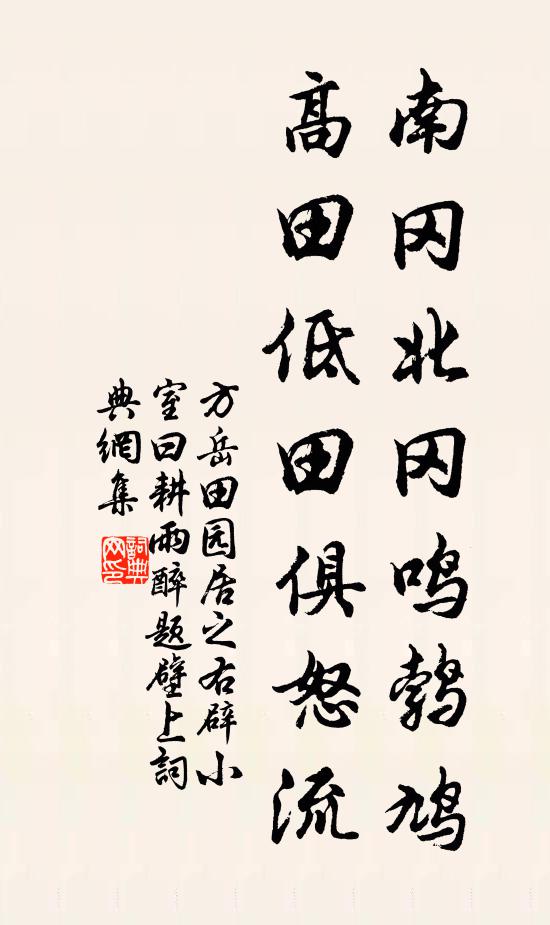 南冈北冈鸣鹁鸠
高田低田俱怒流
方岳田园居之右辟小
室曰耕雨醉题壁上詞
典網集
詞典网印